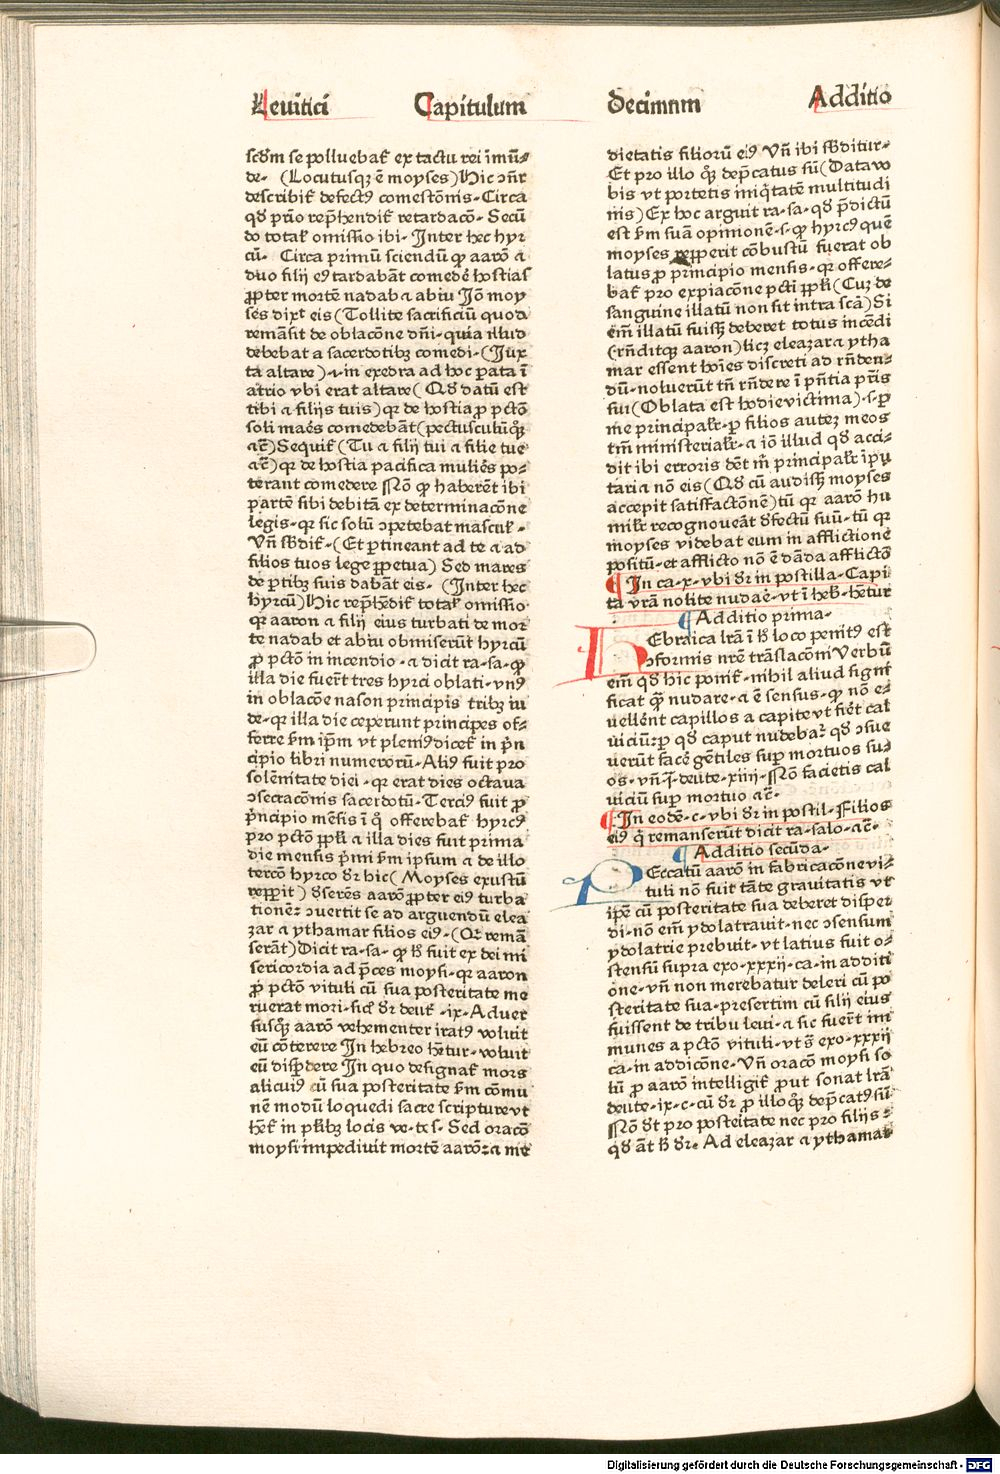 Leuitici Capitulum Decimnm Additio
scd̄m se polluebat̄ ex tactu rei īmū⸗
de· (Locutusqꝫ ē moyses) Hic ꝯñr
describit̄ defectꝰ comestōnis· Circa
qđ prīo rep̄hendit̄ retardacō· Secū
do total̄ omissio ibi· Inter hec hyr
cū· Circa primū sciendū ꝙ aarō ⁊
duo filij eiꝰ tardabāt comedē hostias
ꝓpter mortē nadab ⁊ abiu Iō moy
ses dixt eis (Tollite sacrificiū quod
remāsit de oblacōne dñi· quia illud
debebat a sacerdotibꝫ comedi· (Iux
ta altare) ·i· in exedra ad hoc ꝑata ī
atrio vbi erat altare (Qđ datū est
tibi ⁊ filijs tuis) qꝛ de hostia ꝓ pctō
soli mares comedebāt (pectusculūqꝫ
⁊c̄) Sequit̄ (Tu ⁊ filij tui ⁊ filie tue
⁊c̄) qꝛ de hostia pacifica mulies po⸗
terant comedere Nō ꝙ haberēt ibi
partē sibi debitā ex determinacōne
legis· qꝛ sic solū ꝯpetebat mascul̄·
Vñ sƀdit̄· (Et ꝑtineant ad te ⁊ ad
filios tuos lege ꝑpetua) Sed mares
de ꝑtibꝫ suis dabāt eis· (Inter hec
hyrcū) Hic rep̄hēdit̄ total̄ omissio
qꝛ aaron ⁊ filij eius turbati de mor
te nadab et abiu obmiserūt hyrcū
ꝓ pctō in incendio· ⁊ dicit ra· sa· ꝙ
illa die fuer̄t tres hyrci oblati· vnꝰ
in oblacōe nason principis tribꝫ iu
de· qꝛ illa die ceperunt principes of⸗
ferre ẜm ip̄m vt pleniꝰ dicet̄ in p̄n
cipio libri numeroꝝ· Aliꝰ fuit pro
solēnitate diei· qꝛ erat dies octaua
ꝯsecracōnis sacerdotū· Terciꝰ fuit ꝓ
p̄ncipio mēsis ī q̄ offerebat̄ hyrcꝰ
pro pctō ppl̄i ⁊ illa dies fuit prima
die mensis p̄mi ẜm ipsum ⁊ de illo
tercō hyrco đr hic (Moyses exustū
repp̄it) đserēs aarō ꝓpter eiꝰ turba
tionēꝫ ꝯuertit se ad arguendū elea
zar ⁊ ythamar filios eiꝰ· (Qꝛ remā
serāt) Dicit ra· sa· ꝙ ħ fuit ex dei mi
sericordia ad p̄ces moysi· qꝛ aaron
ꝓ pctō vituli cū sua posteritate me
ruerat mori· sicut đr deut̄· ix· Aduer
susqꝫ aarō vehementer iratꝰ voluit
eū cōterere In hebreo hētur· voluit
eū disꝑdere In quo designat̄ mors
alicuiꝰ cū sua posteritate ẜm cōmu
nē modū loquedi sacre scripture vt
hēt̄ in pl̄ibꝫ locis ve· te· Sed oracō
moysi impediuit mortē aarōꝫ ⁊ me
dietatis filiorū eiꝰ Vñ ibi sƀditur·
Et pro illo qꝫ dep̄catus sū (Data vo
bis vt portetis iniq̄tatē multitudi
nis) Ex hoc arguit ra· sa· qđ p̄dictū
est ẜm suā opinionē· s· ꝙ hyrcꝰ quē
moyses repperit cōbustū fuerat ob
latus ꝓ principio mensis· qꝛ offere⸗
bat̄ pro expiacōne pcti ppl̄i (Cuꝫ de
sanguine illatū non sit intra scā) Si
em̄ illatū fuisꝫ deberet totus incēdi
(rñditqꝫ aaron) licꝫ eleazar ⁊ ytha
mar essent hoīes discreti ad rñden⸗
dū· noluerūt tñ rñdere ī p̄ntia pr̄is
sui (Oblata est hodie victima) ·s· ꝑ
me principal̄r· ꝑ filios autez meos
tm̄ ministerial̄r· ⁊ iō illud qđ acci⸗
dit ibi erroris dēt m̄ principal̄r īpu
tari ⁊ nō eis (Qđ cū audisꝫ moyses
accepit satisfactōnē) tū qꝛ aarō hu
mil̄r recognoueāt đfectū suū· tū qꝛ
moyses videbat eum in afflictione
positū· et afflicto nō ē dāda afflictō
¶ In ca· x· vbi đr in postilla· Capi
ta vr̄a nolite nudaē· vt ī heƀ· hētur
¶ Additio prima·
HEbraica lr̄a ī ħ loco penitꝰ est
ꝯformis nr̄e trāslacōni Verbū
em̄ qđ hic ponit̄· nihil aliud signi
ficat q̄ nudare· ⁊ ē sensus· ꝙ nō e⸗
uellēnt capillos a capite vt fiēt cal
uiciūꝫ ꝑ qđ caput nudebat̄ qđ ꝯsue
uerūt facē gētiles suꝑ mortuos su⸗
os· vñ· ī· deute· xiiij· Nō facietis cal
uiciū suꝑ mortuo ⁊c̄·
¶ In eodē· c· vbi đr in postil· Filios
eiꝰ q̄ remanserūt dicit ra· salo· ⁊c̄·
¶ Additio secūda·
PEccatū aarō in fabricacōne vi⸗
tuli nō fuit tāte grauitatis vt
ip̄e cū posteritate sua deberet disper
di· nō em̄ ydolatrauit· nec ꝯsensum
ydolatrie prebuit· vt latius fuit o⸗
stensū supra exo· xxxij· ca· in additi
one· vñ non merebatur deleri cū po
steritate sua· presertim cū filij eius
fuissent de tribu leui· ⁊ sic fuer̄t im
munes a pctō vituli· vt s̄ exo· xxxij
ca· in addicōne· Vñ oracō moysi so
lū ꝓ aarō intelligit̄ ꝓut sonat lr̄a
deute· ix· c· cū đr ꝓ illo qꝫ dep̄catꝰ sū·
Nō đt pro posteitate nec pro filijs⸗
qđ āt ħ đr· Ad eleazar ⁊ ythamar
Digitalisierung gefördert durch die Deutsche Forschungsgemeinschaft - DFG